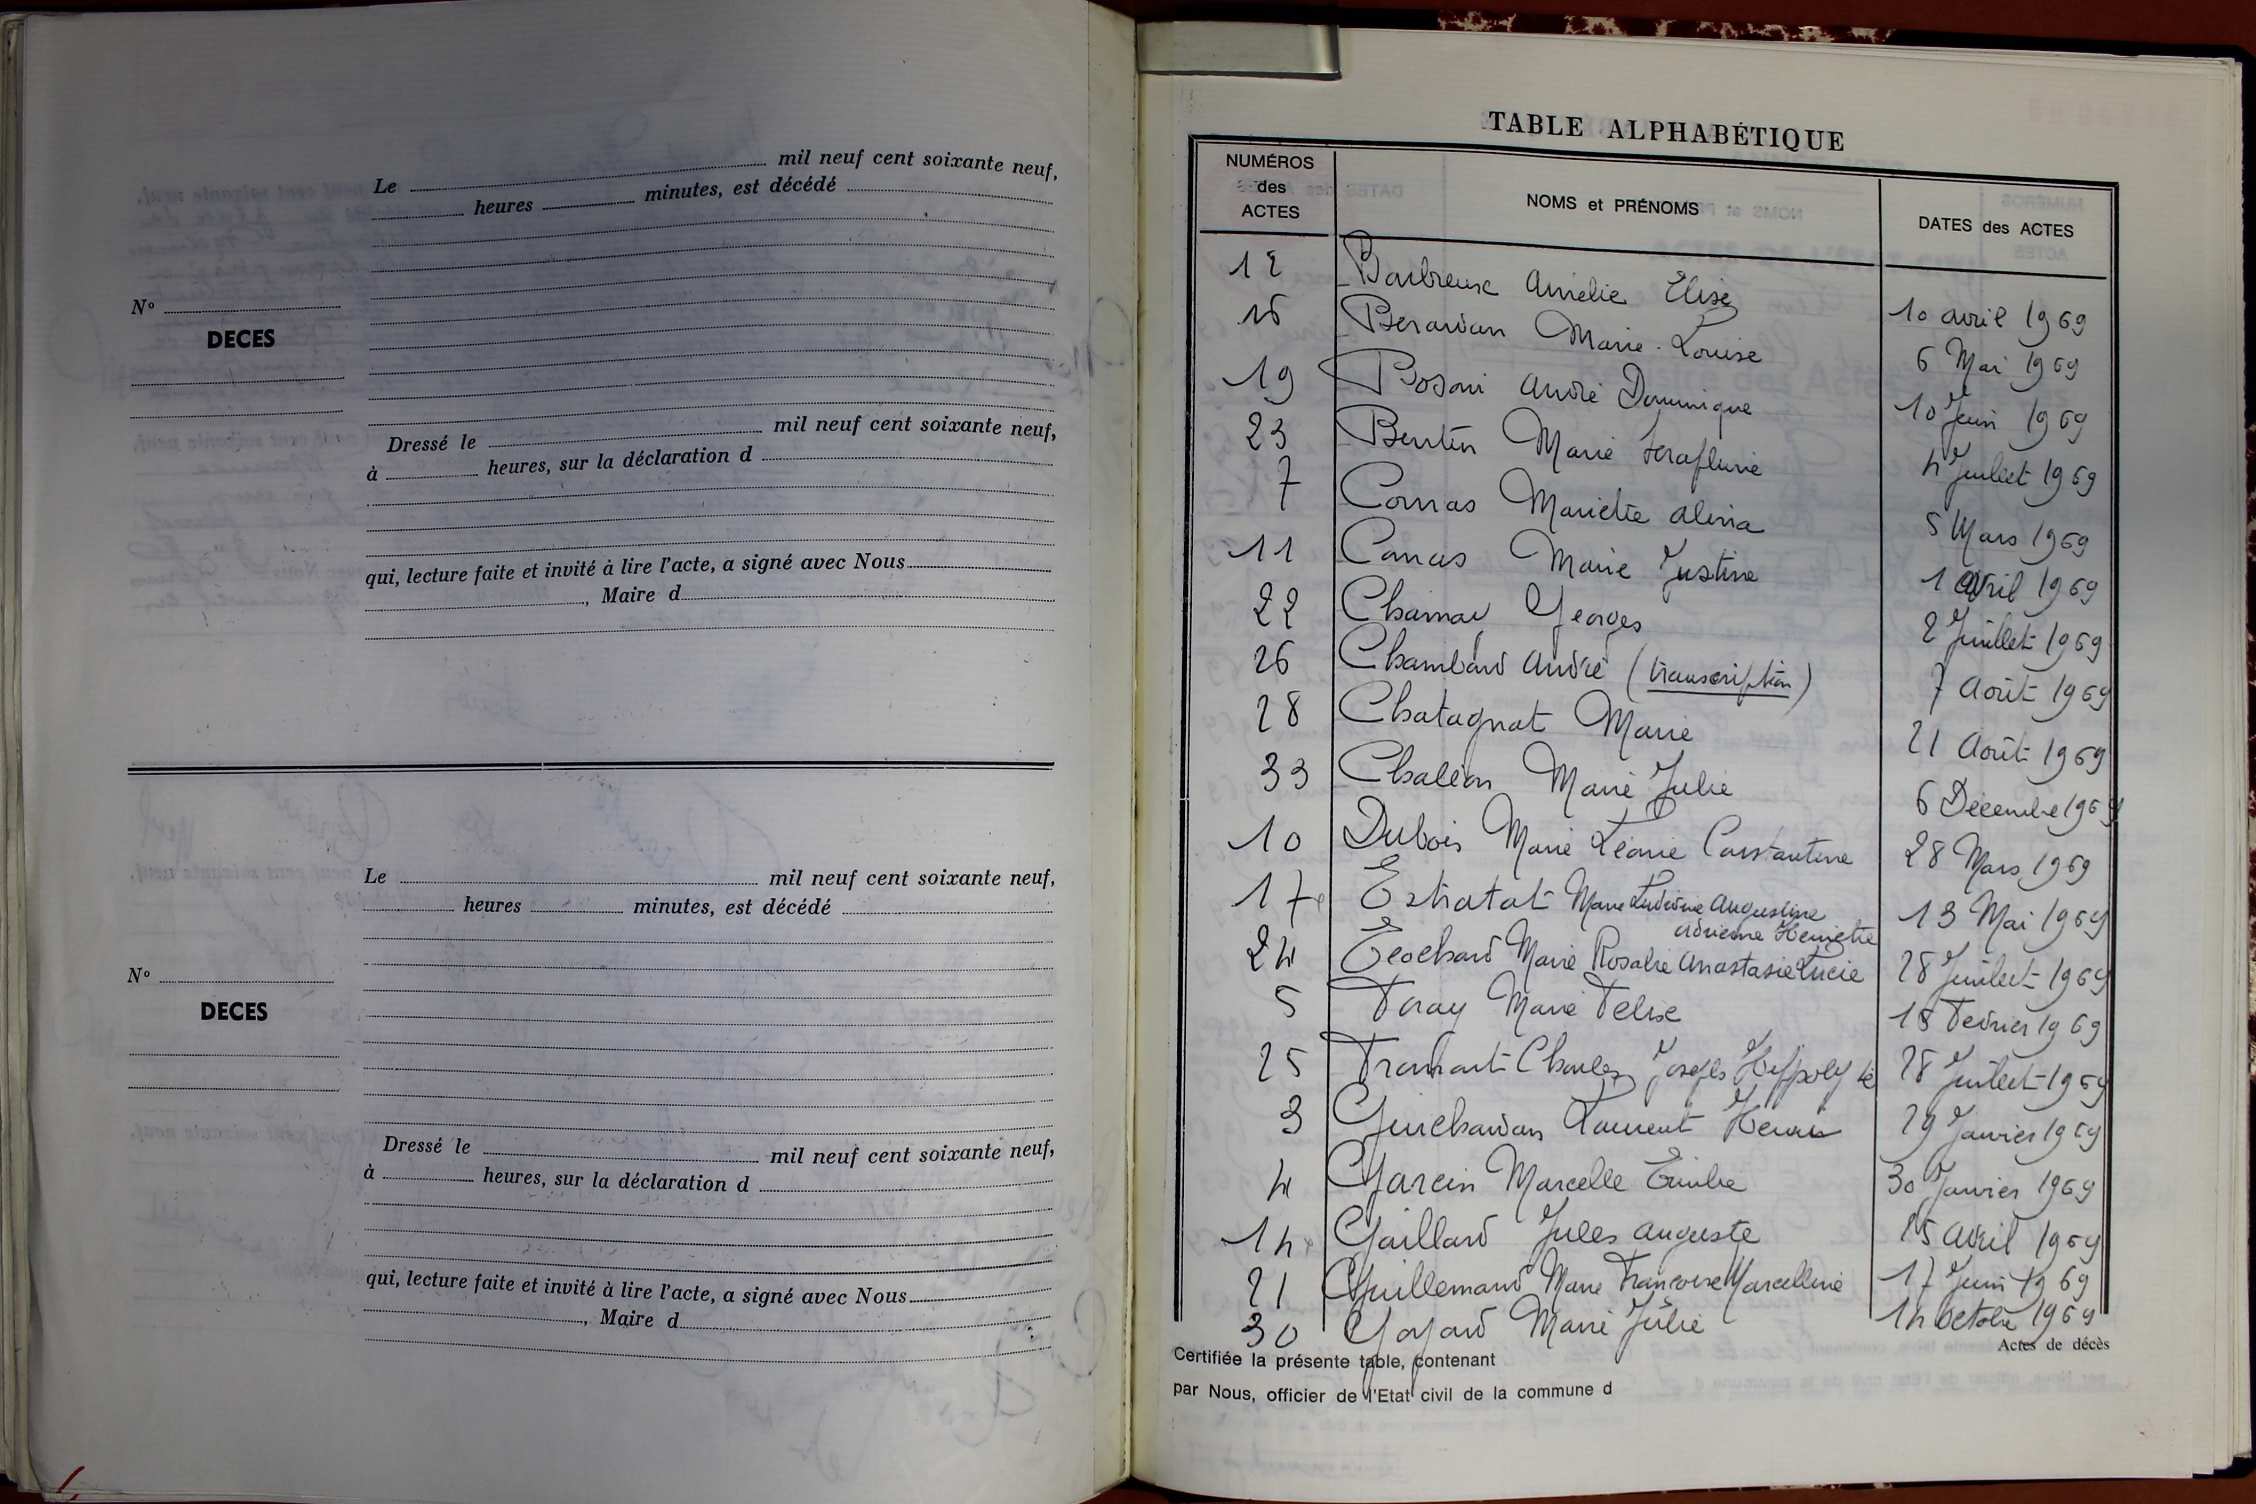 Le mil neuf cent soixante neuf,
heures minutes, est décédé
N°
DECES
Dressé le mil neuf cent soixante neuf,
à heures, sur la déclaration d
qui, lecture faite et invité à lire l'acte, a signé avec Nous
, Maire d
Le mil neuf cent soixante neuf,
heures minutes, est décédé
N°
DECES
Dressé le mil neuf cent soixante neuf,
à heures, sur la déclaration d
qui, lecture faite et invité à lire l'acte, a signé avec Nous
, Maire d
TABLE ALPHABÉTIQUE
NUMÉROS des ACTES NOMS et PRÉNOMS DATES des ACTES
12 Barbreux Amélie Elise 10 avril 1969
16 Berardan Marie-Louise 6 Mai 1969
19 André Dominique 10 Juin 1969
23 Marie 4 Juillet 1969
7 Comas Mariette 5 Mars 1969
11 Marie Justine 1 avril 1969
22 Georges 2 Juillet 1969
26 Chambard André (transcription) 7 Août 1969
28 Chatagnat Marie 21 Août 1969
33 Chaléon Marie Julie 6 Décembre 1969
10 Dubois Marie Léonie Constantine 28 Mars 1969
17 Estratat Marie Ludivine Augustine 13 Mai 1969
Adrienne Henriette
24 Marie Rosalie Anastasie Lucie 28 Juillet 1969
5 Foray Marie 18 Fevrier 1969
25 Charles Joseph Hippolyte 28 Juillet 1969
3 Guichardan Laurent 29 Janvier 1969
4 Garcin Marcelle Emilie 30 Janvier 1969
14 Gaillard Jules Auguste 15 avril 1969
21 Guillemard Marie Francoise Marcelline 17 Juin 1969
30 Marie Julie 14 Octobre 1969
Actes de décès
Certifiée la présente table, contenant
par Nous, officier de l'Etat civil de la commune d